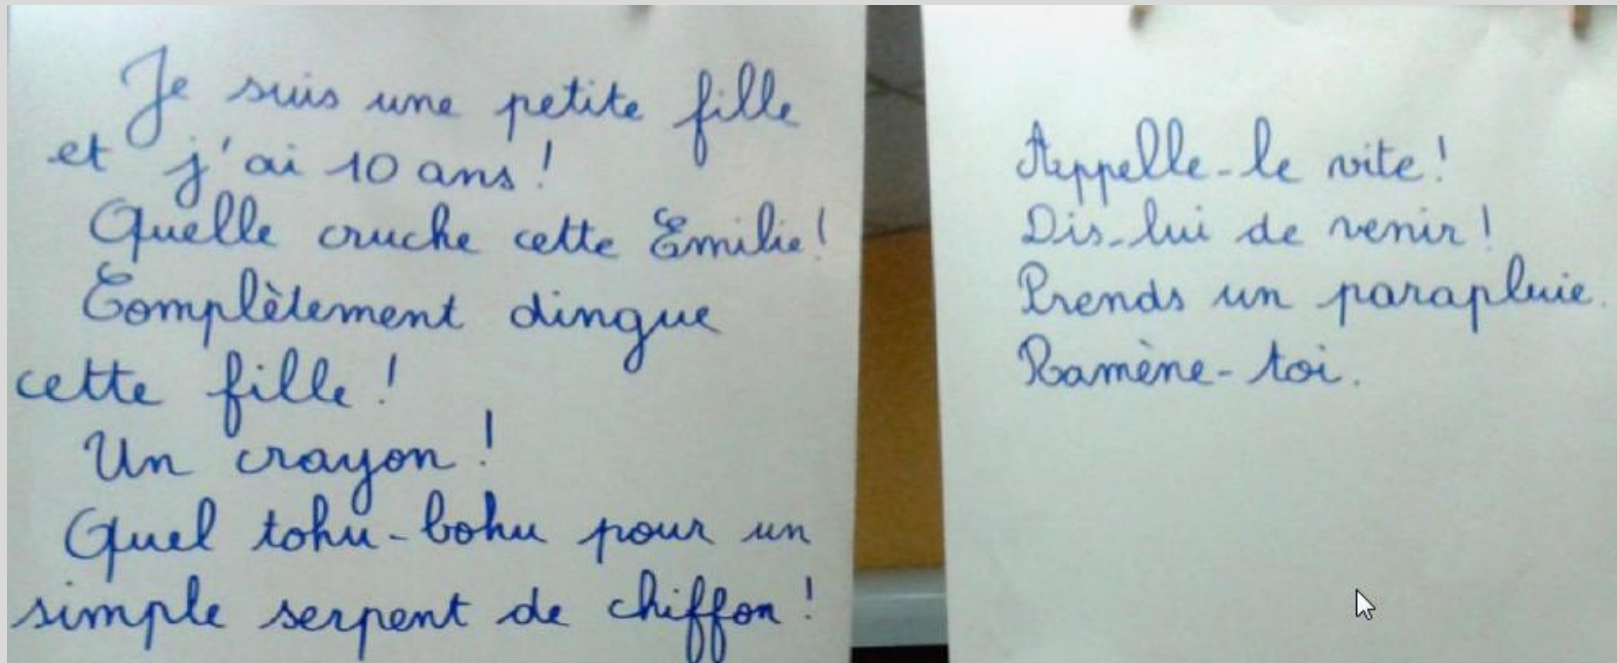 Je suis une petite fille
et j'ai 10 ans !
Quelle cruche cette Emilie !
Complètement dingue
cette fille !
Un crayon !
Quel tohu-bohu pour un
simple serpent de chiffon !
Appelle-le vite !
Dis-lui de venir !
Prends un parapluie.
Ramène-toi.